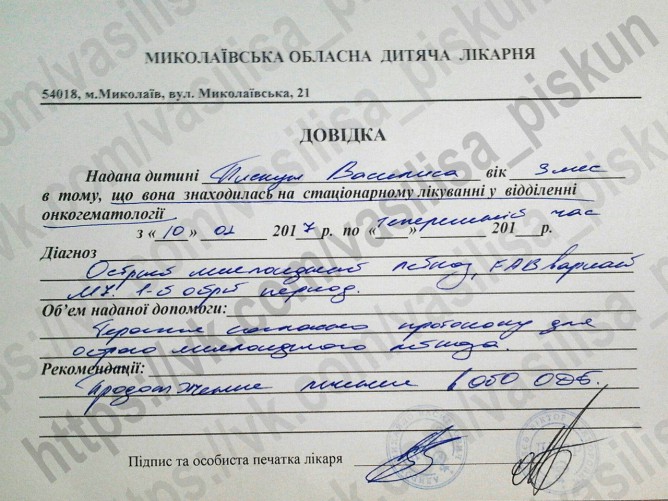 МИКОЛАЇВСЬКА ОБЛАСНА ДИТЯЧА ЛІКАРНЯ
54018, м.Миколаїв, вул. Миколаївська, 21
ДОВІДКА
Надана дитині Пискун Василиса вік 3 мес
в тому, що вона знаходилась на стаціонарному лікуванні у відділенні
онкогематології
з «10» 01 2017р. по «теперішній час» 201 р.
Діагноз
Острый миелоидный лейкоз, FAB вариант
М7. 1-й острый период.
Об’єм наданої допомоги:
Терапия согласно протоколу для
острого миелоидного лейкоза.
Рекомендації:
Продолжение лечения в ОБО ОДБ.
Підпис та особиста печатка лікаря
https://vk.com/vasilisa_piskun